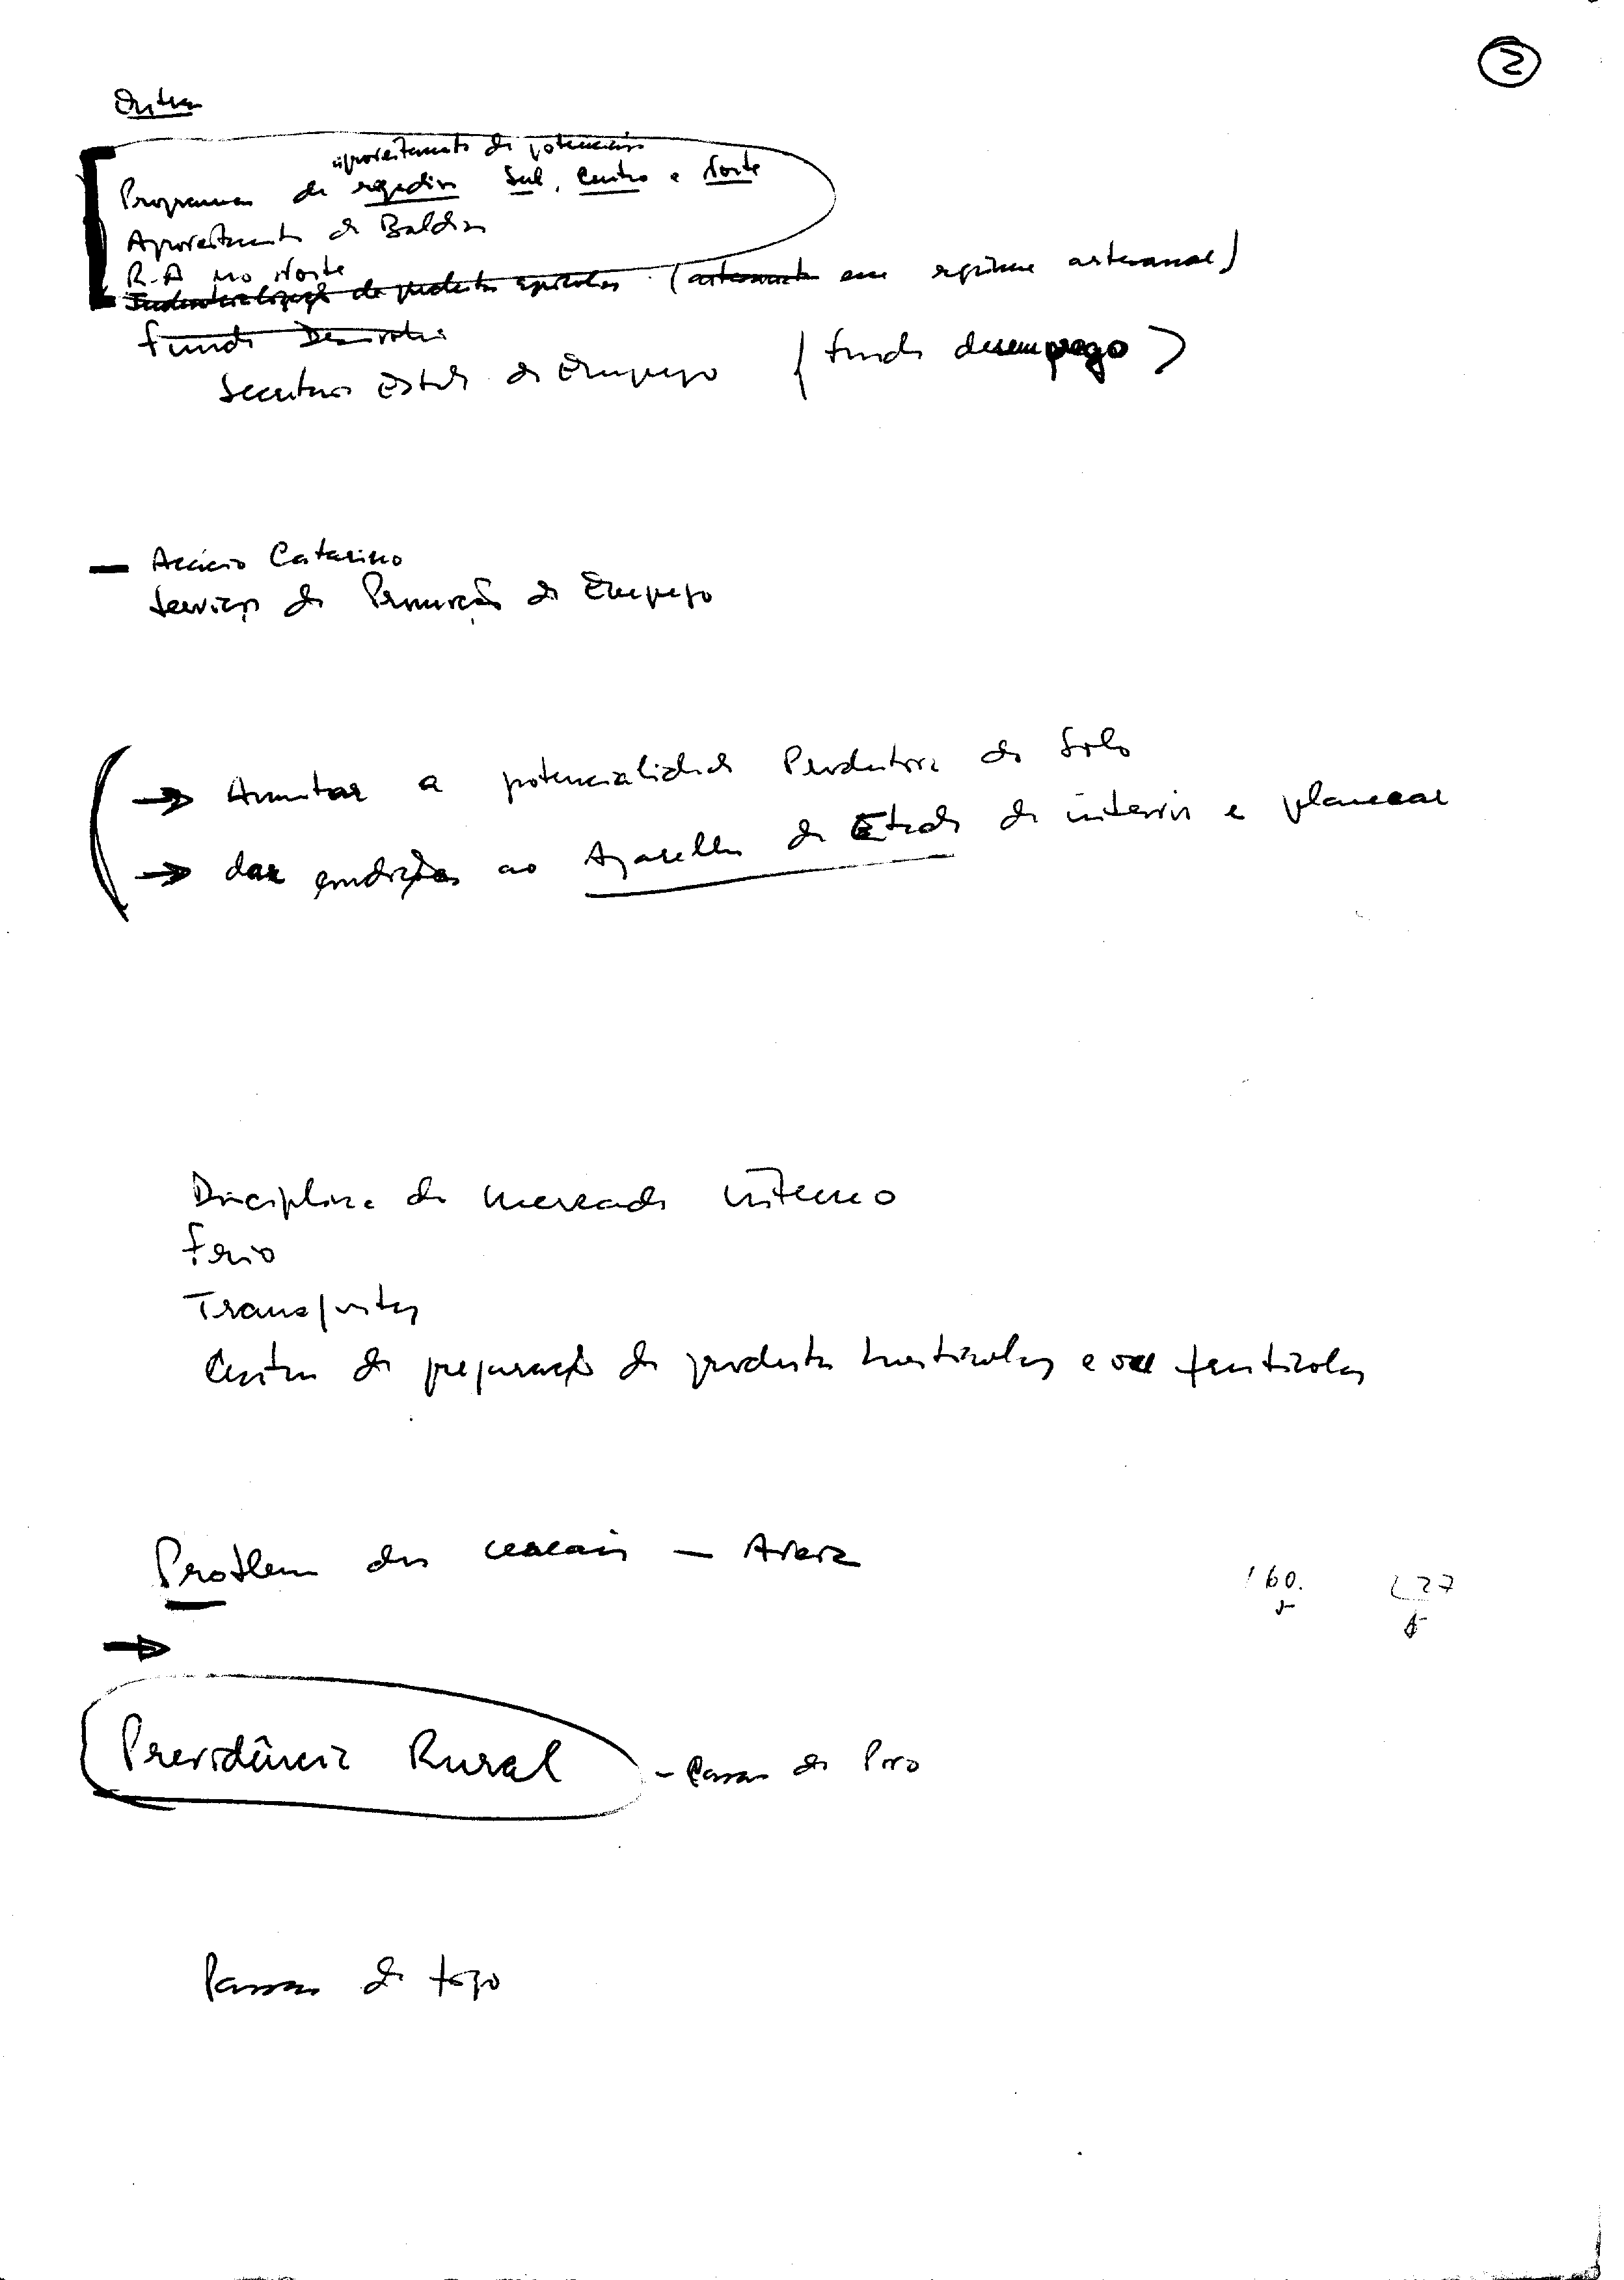 2
Outros
aproveitamento de potenciais
Programas de regadios Sul, Centro e Norte
Aproveitamento de Baldios
R.A no Norte
Industrialização de produtos agrícolas (artesanato em regime artesanal)
Fundo Desenvolvi
Secretário Estado do Emprego (Fundo desemprego)
— Acácio Catarino
Serviço de Promoção do Emprego
→ Aumentar a potencialidade Produtora do Solo
→ dar condições ao Aparelho de Estado de intervir e planear
Disciplina do mercado interno
Frio
Transportes
Centros de preparação de produtos hortícolas e ou frutícolas
Problema dos cereais —
→
160. 227
Previdência Rural - Casas do Povo
de fogo